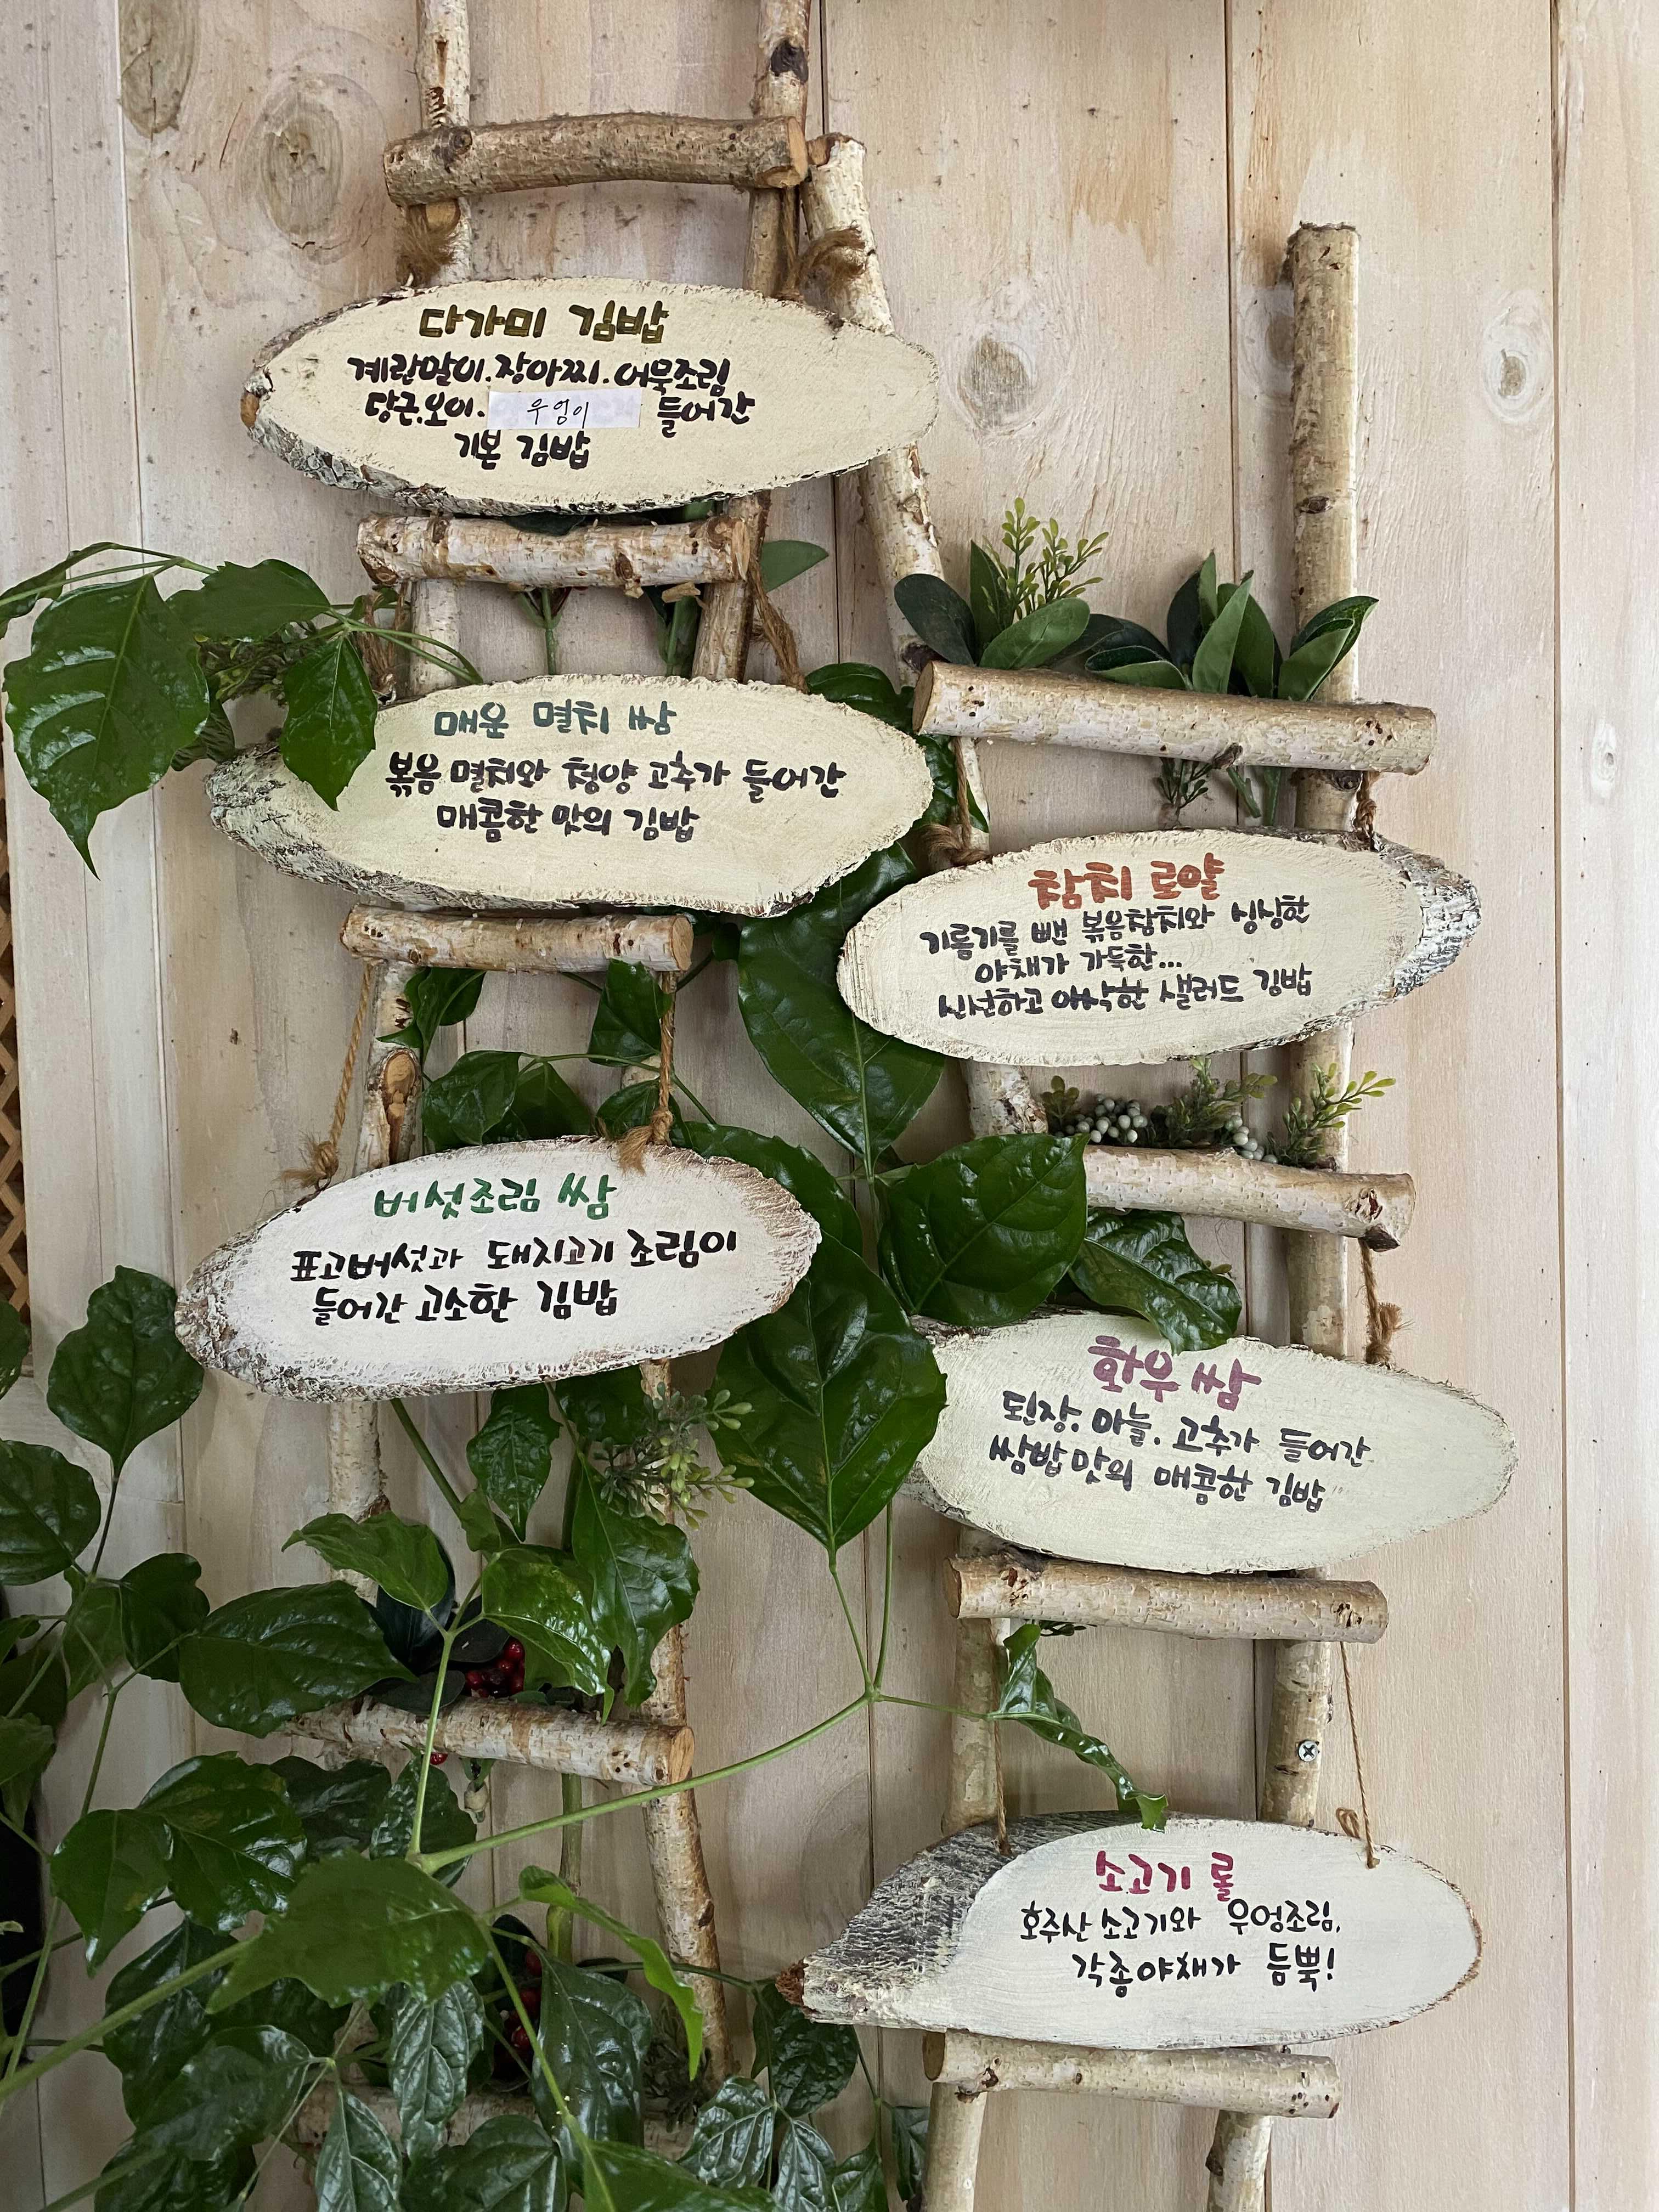 다가미 김밥
계란말이.장아찌.어묵조림
당근.오이. 우엉이 들어간
기본 김밥
매운 멸치 쌈
볶음 멸치와 청양 고추가 들어간
매콤한 맛의 김밥
버섯조림 쌈
표고버섯과 돼지고기 조림이
들어간 고소한 김밥
참치 로얄
기름기를 뺀 볶음참치와 싱싱한
야채가 가득한...
신선하고 아삭한 샐러드 김밥
화우 쌈
된장. 마늘. 고추가 들어간
쌈밥맛의 매콤한 김밥
소고기 롤
호주산 소고기와 우엉조림,
각종야채가 듬뿍!